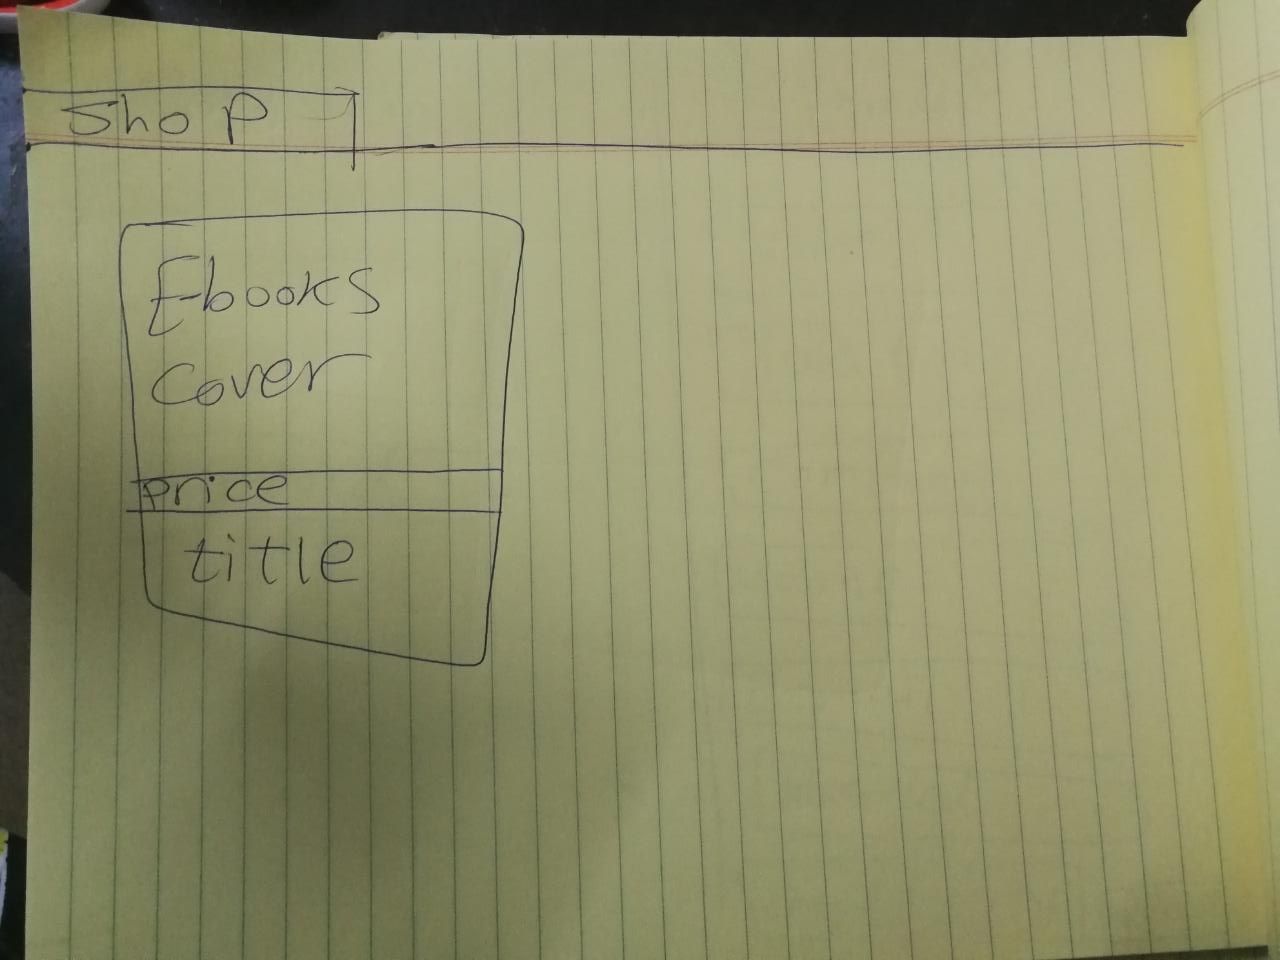 Shop
E-books
cover
price
title